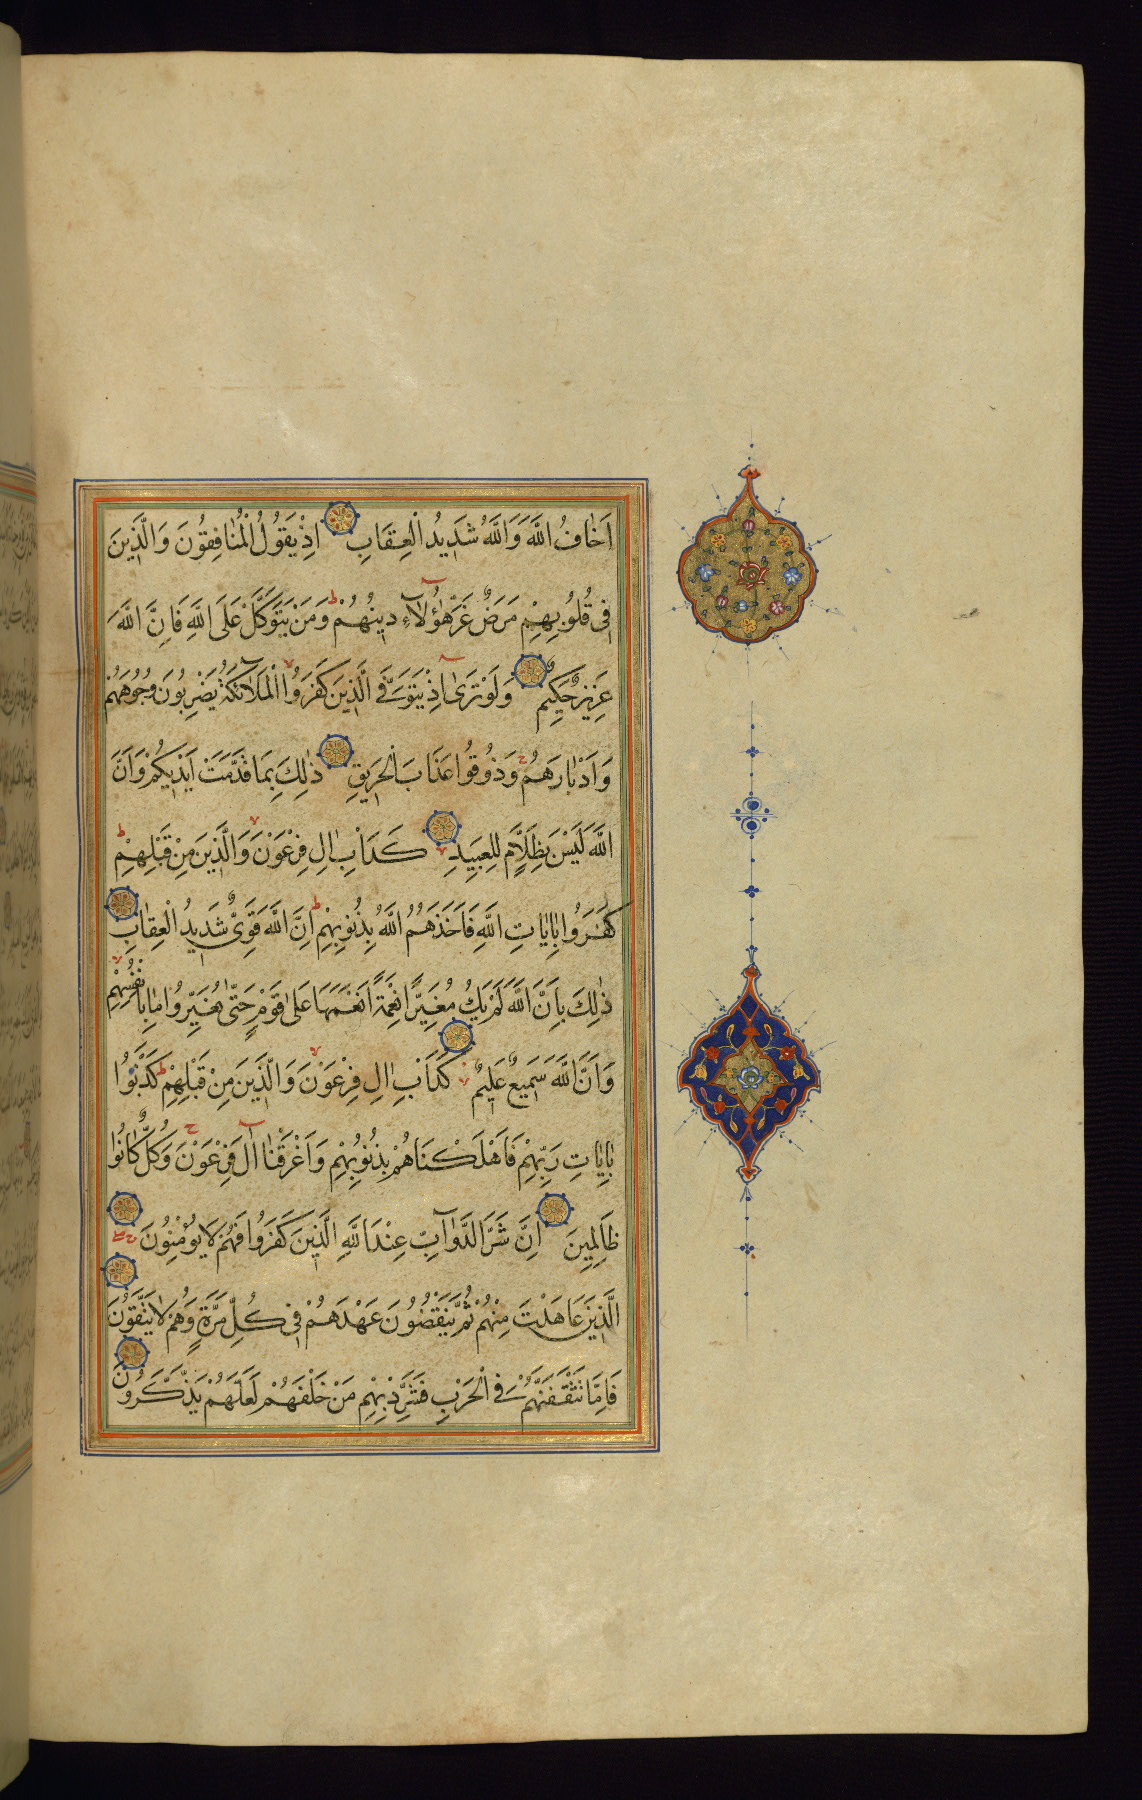 اَخَافُ اللَّهَ وَاللَّهُ شَدِيدُ الْعِقَابِ اِذْ يَقُولُ الْمُنَافِقُونَ وَالَّذِينَ
فِي قُلُوبِهِمْ مَرَضٌ غَرَّ هٰؤُلَاءِ دِينُهُمْ ط وَمَنْ يَتَوَكَّلْ عَلَى اللَّهِ فَاِنَّ اللَّهَ
عَزِيزٌ حَكِيمٌ وَلَوْ تَرٰى اِذْ يَتَوَفَّى الَّذِينَ كَفَرُوا الْمَلٰائِكَةُ يَضْرِبُونَ وُجُوهَهُمْ
وَاَدْبَارَهُمْ ج وَذُوقُوا عَذَابَ الْحَرِيقِ ذٰلِكَ بِمَا قَدَّمَتْ اَيْدِيكُمْ وَاَنَّ
اللَّهَ لَيْسَ بِظَلَّامٍ لِلْعَبِيدِ لا كَدَاْبِ اٰلِ فِرْعَوْنَ لا وَالَّذِينَ مِنْ قَبْلِهِمْ ط
كَفَرُوا بِاٰيَاتِ اللَّهِ فَاَخَذَهُمُ اللَّهُ بِذُنُوبِهِمْ ط اِنَّ اللَّهَ قَوِيٌّ شَدِيدُ الْعِقَابِ
ذٰلِكَ بِاَنَّ اللَّهَ لَمْ يَكُ مُغَيِّرًا نِعْمَةً اَنْعَمَهَا عَلٰى قَوْمٍ حَتّٰى يُغَيِّرُوا مَا بِاَنْفُسِهِمْ لا
وَاَنَّ اللَّهَ سَمِيعٌ عَلِيمٌ لا كَدَاْبِ اٰلِ فِرْعَوْنَ لا وَالَّذِينَ مِنْ قَبْلِهِمْ ط كَذَّبُوا
بِاٰيَاتِ رَبِّهِمْ فَاَهْلَكْنَاهُمْ بِذُنُوبِهِمْ وَاَغْرَقْنَا اٰلَ فِرْعَوْنَ ج وَكُلٌّ كَانُوا
ظَالِمِينَ اِنَّ شَرَّ الدَّوَابِّ عِنْدَ اللَّهِ الَّذِينَ كَفَرُوا فَهُمْ لَا يُؤْمِنُونَ
الَّذِينَ عَاهَدْتَ مِنْهُمْ ثُمَّ يَنْقُضُونَ عَهْدَهُمْ فِي كُلِّ مَرَّةٍ وَهُمْ لَا يَتَّقُونَ
فَاِمَّا تَثْقَفَنَّهُمْ فِي الْحَرْبِ فَشَرِّدْ بِهِمْ مَنْ خَلْفَهُمْ لَعَلَّهُمْ يَذَّكَّرُونَ